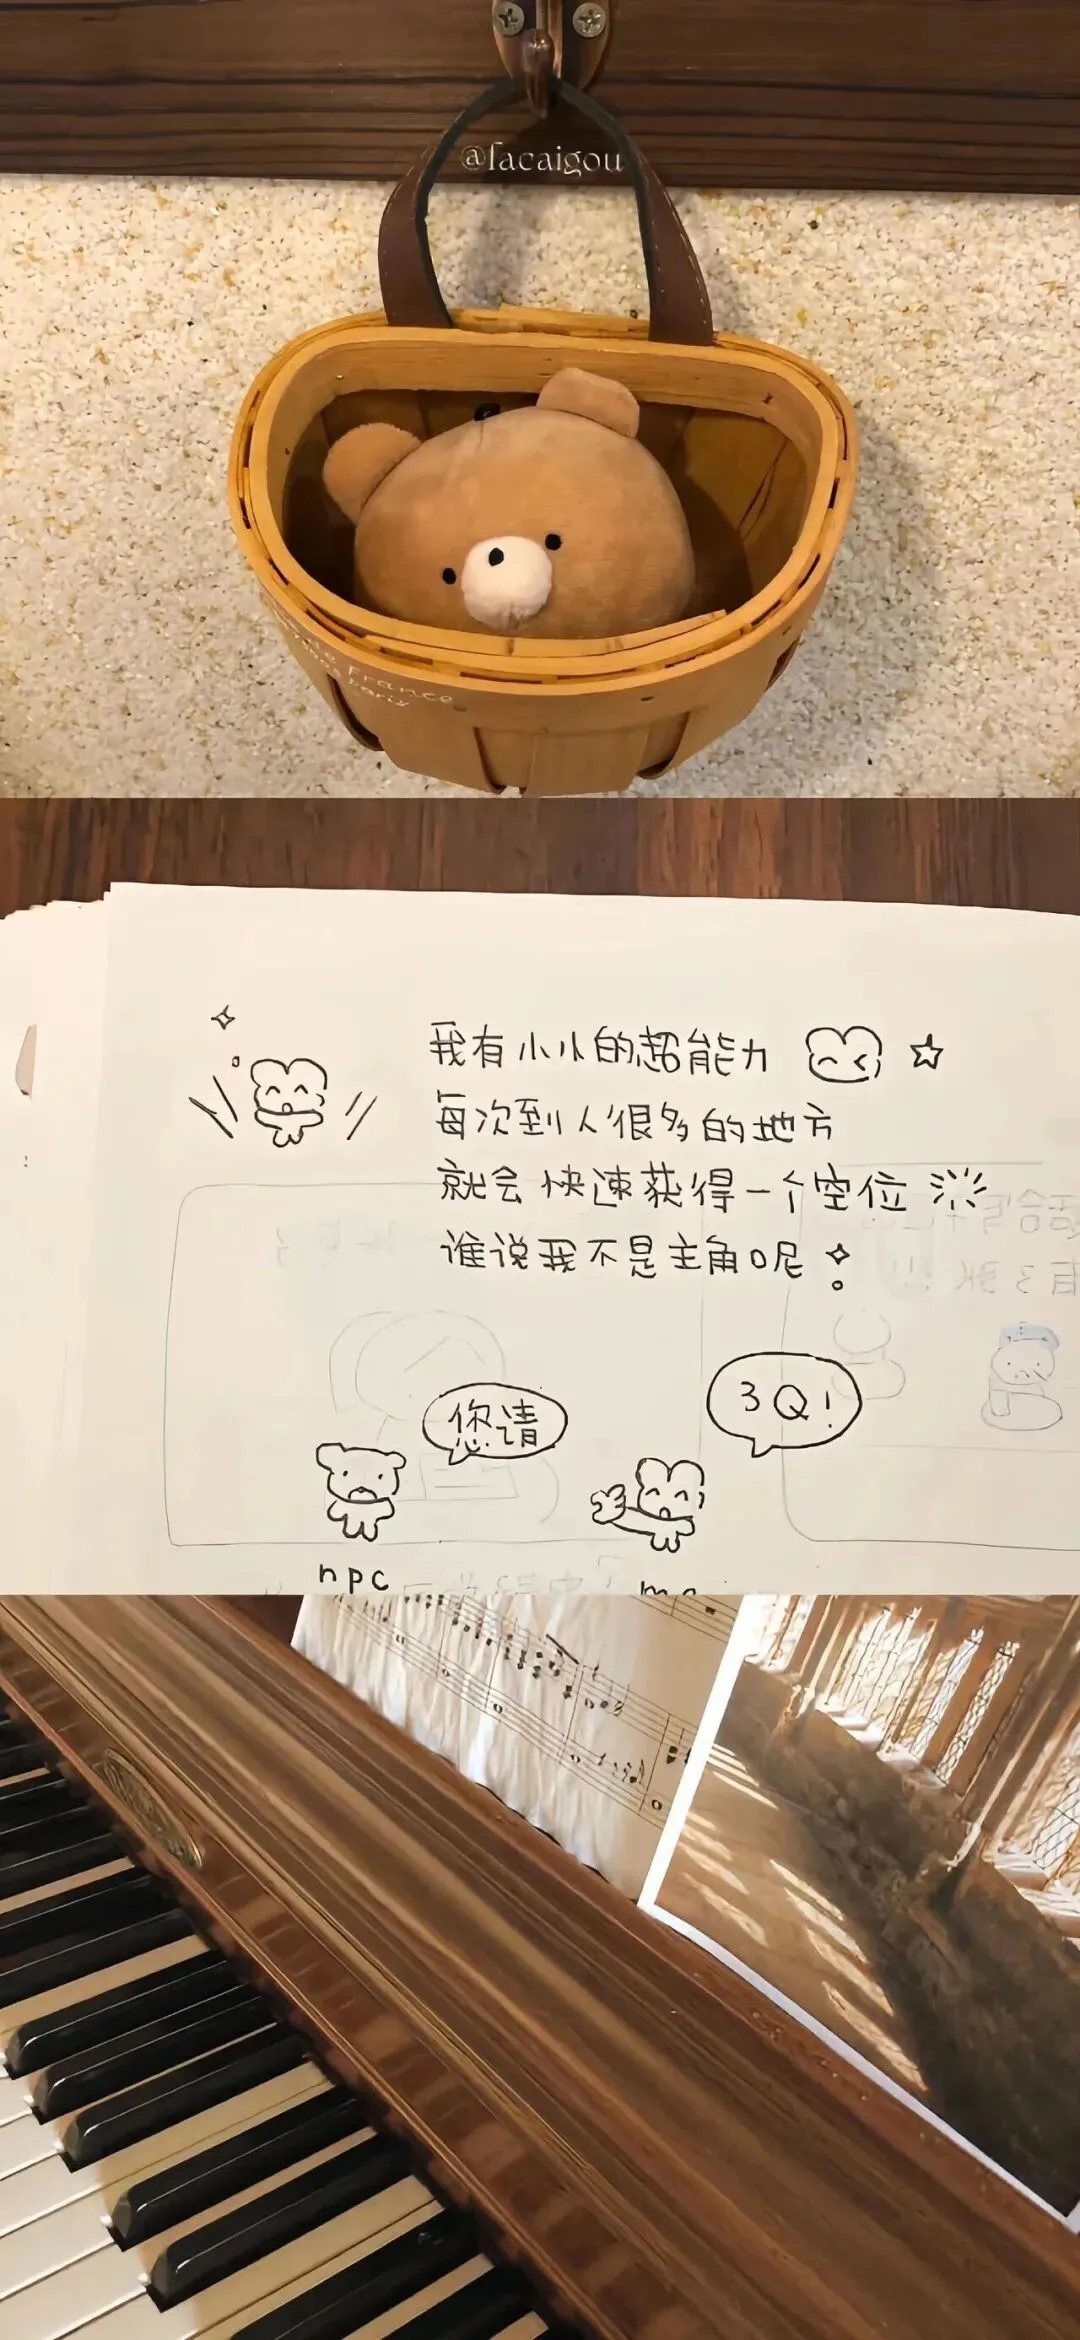 @facaigou
France
我有小小的超能力
每次到人很多的地方
就会快速获得一个空位
谁说我不是主角呢
您请
3Q!
npc